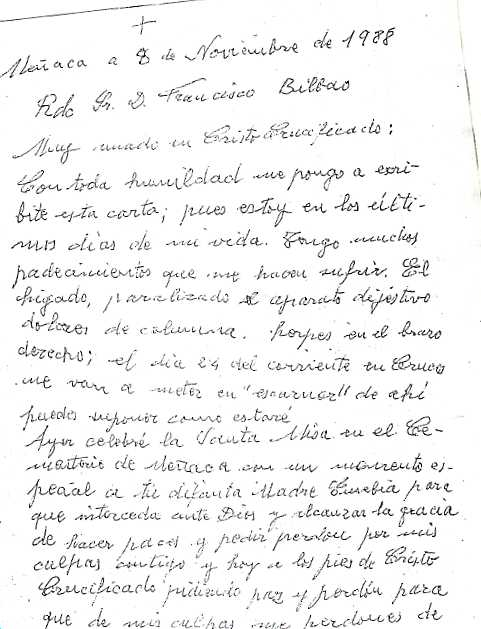 +
Meñaca a 8 de Noviembre de 1988
Rdo Sr. D. Francisco Bilbao
Muy amado en Cristo Crucificado;
Con toda humildad me pongo a escri-
birte esta carta; pues estoy en los últi-
mos días de mi vida. Tengo muchos
padecimientos que me hacen sufrir. El
higado, paralizado el aparato dijestivo
dolores de columna. herpes en el brazo
derecho; el día 24 del corriente en Cruces
me van a meter en "escarnar" de ahí
puedes suponer como estaré
Ayer celebré la Santa Misa en el Ce-
menterio de Meñaca con un momento es-
pecial a tu difunta Madre Eusebia para
que interceda ante Dios y alcanzar la gracia
de hacer paces y pedir perdon por mis
culpas contigo y hoy a los pies de Cristo
Crucificado pidiendo paz y perdón para
que de mis culpas me perdones de